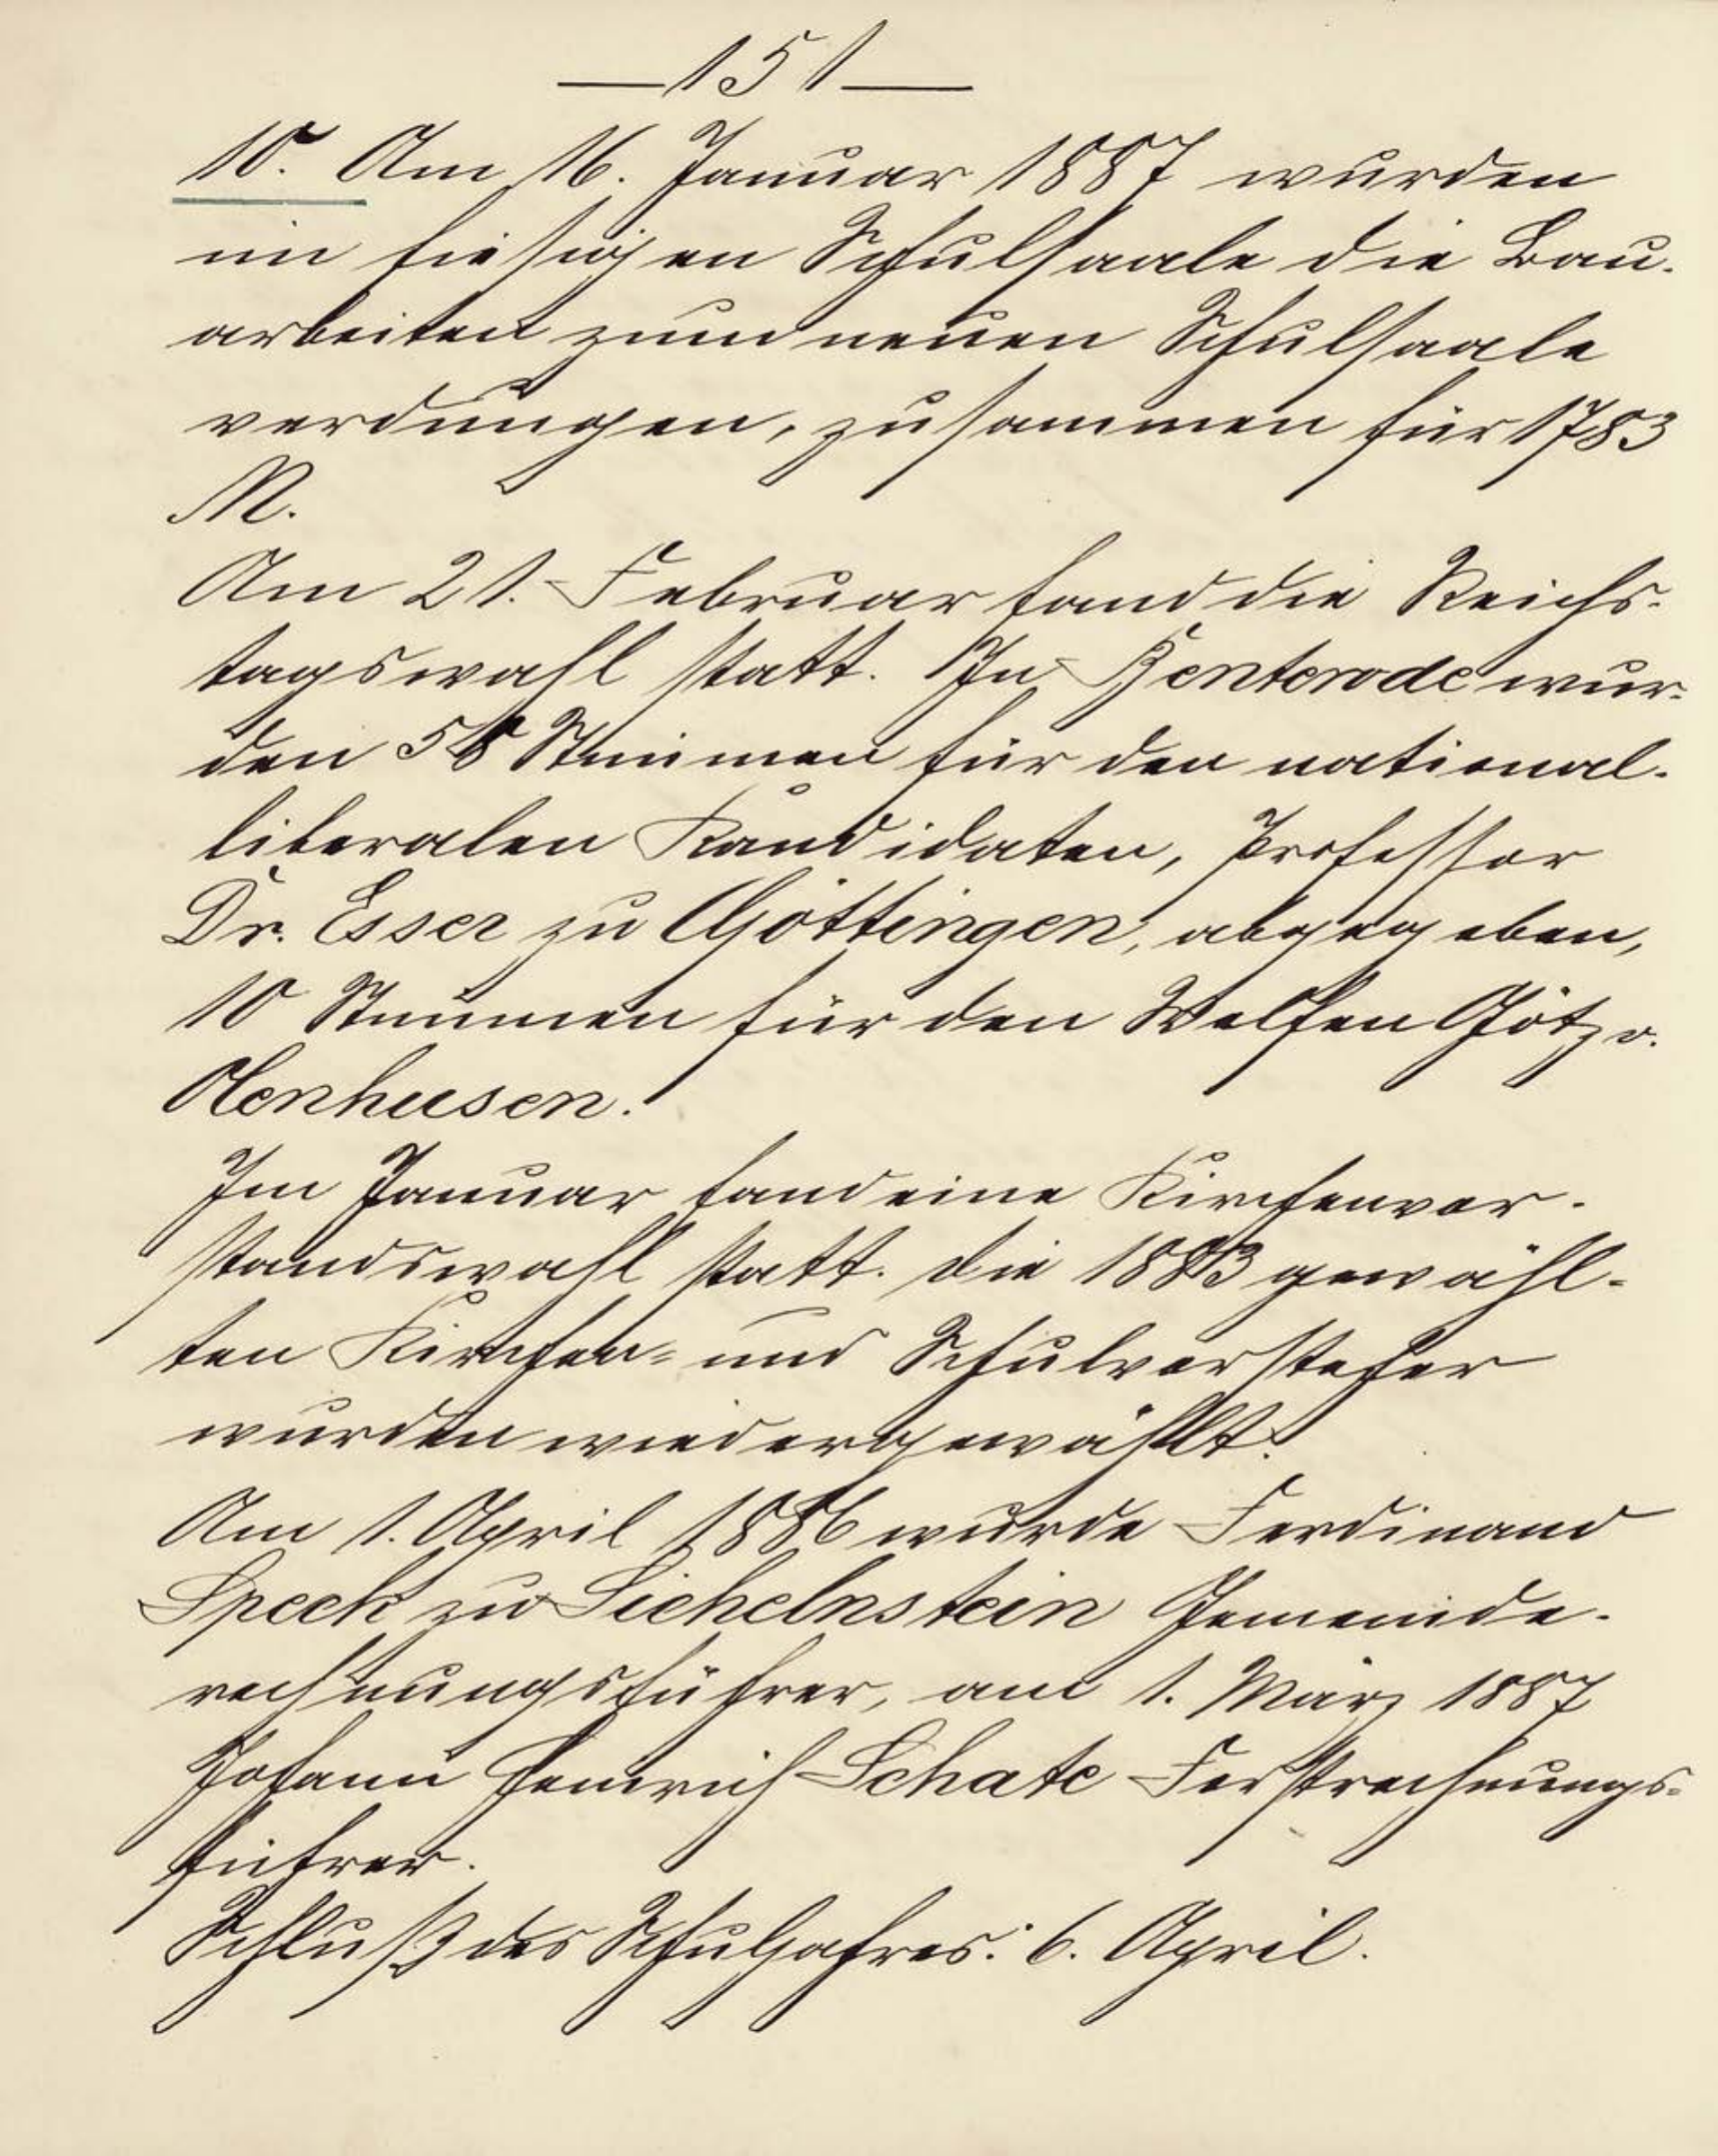 — 151 —
10. Am 16. Januar 1887 wurden
im hiesigen Schulsaale die Bau-
arbeiten zum neuen Schulsaale
verdungen, zusammen für 1783
M.
Am 21. Februar fand die Reichs-
tagswahl statt. In Benterode wur-
den 58 Stimmen für den national-
liberalen Kandidaten, Professor
Dr. Esser zu Göttingen, abgegeben,
10 Stimmen für den Welfen Götz v.
Olenhusen.
Im Januar fand eine Kirchenvor-
standswahl statt. Die 1883 gewähl-
ten Kirchen- und Schulvorsteher
wurden wiedergewählt.
Am 1. April 1886 wurde Ferdinand
Speck zu Sichelnstein Gemeinde-
rechnungsführer, am 1. März 1887
Johann Heinrich Schate Forstrechnungs-
führer.
Schluß des Schuljahres: 6. April.